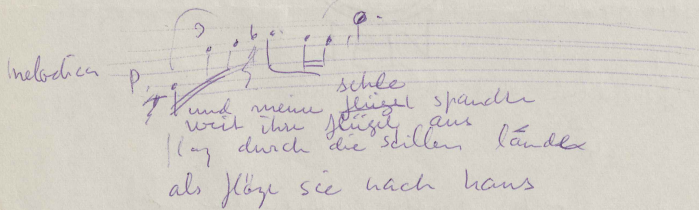 Melodica P.
und meine flügel schle spandte
weit ihre flügel aus
flog durch die stillen lände
als flöge sie nach haus